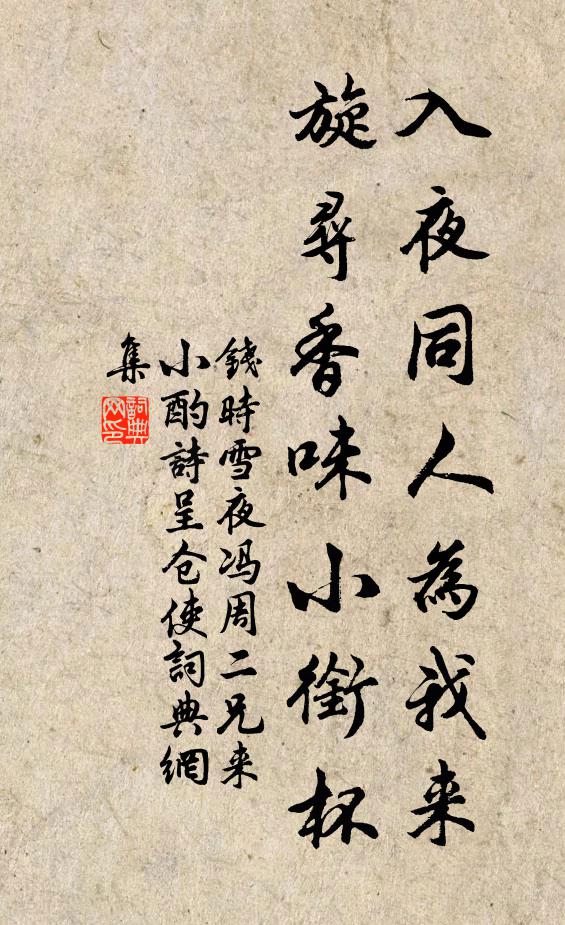 入夜同人為我来
旋尋香味小銜杯
錢時雪夜冯周二兄来
小酌詩呈仓使詞典網
集
詞典
网印